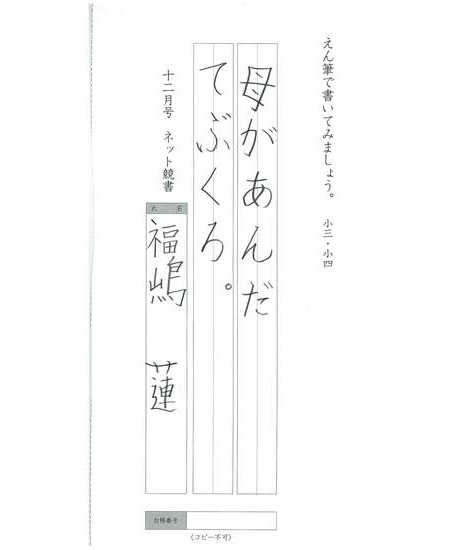 えん筆で書いてみましょう。 小三・小四
母があんだ
てぶくろ。
十二月号 ネット競書
氏 名
福嶋 蓮
合格番号
(コピー不可)